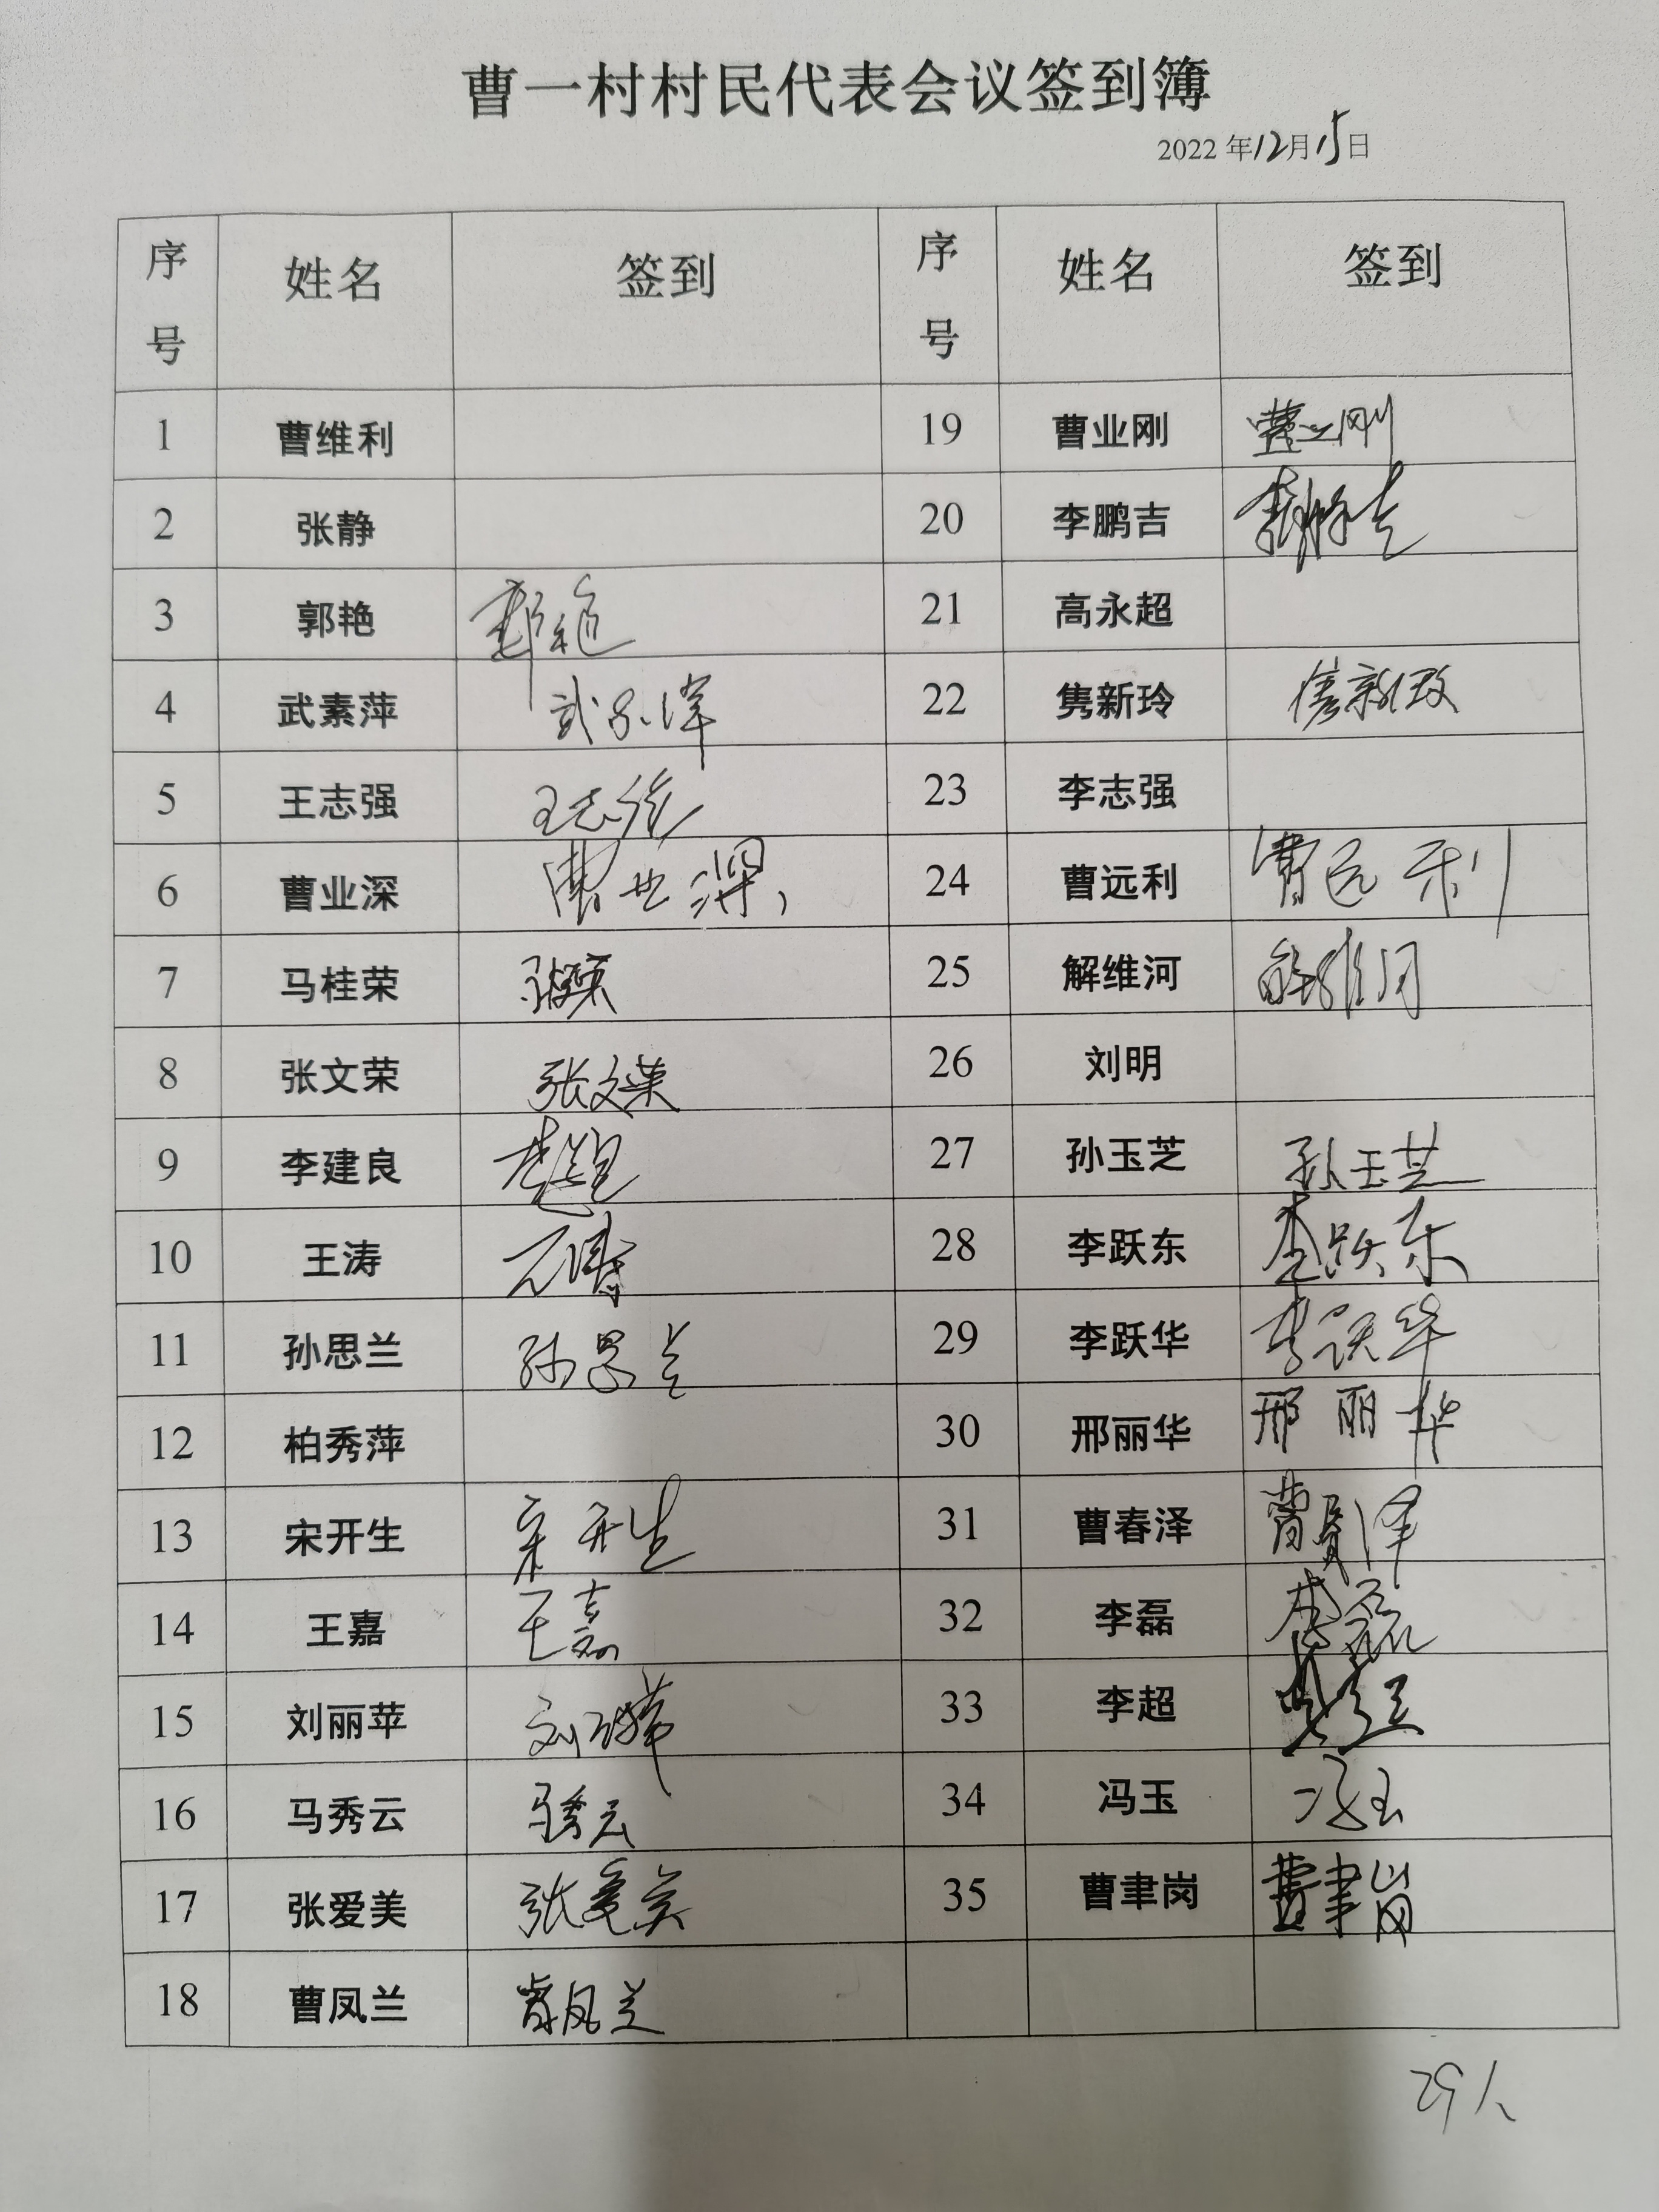 曹一村村民代表会议签到簿
2022年12月15日
序号 姓名 签到 序号 姓名 签到
1 曹维利 19 曹业刚 曹业刚
2 张静 20 李鹏吉 李鹏吉
3 郭艳 郭艳 21 高永超
4 武素萍 武素萍 22 隽新玲 隽新玲
5 王志强 王志强 23 李志强
6 曹业深 曹业深 24 曹远利 曹远利
7 马桂荣 马桂荣 25 解维河 解维河
8 张文荣 张文荣 26 刘明
9 李建良 李建良 27 孙玉芝 孙玉芝
10 王涛 王涛 28 李跃东 李跃东
11 孙思兰 孙思兰 29 李跃华 李跃华
12 柏秀萍 30 邢丽华 邢丽华
13 宋开生 宋开生 31 曹春泽 曹春泽
14 王嘉 王嘉 32 李磊 李磊
15 刘丽苹 刘丽苹 33 李超 李超
16 马秀云 马秀云 34 冯玉 冯玉
17 张爱美 张爱美 35 曹聿岗 曹聿岗
18 曹凤兰 曹凤兰
29人